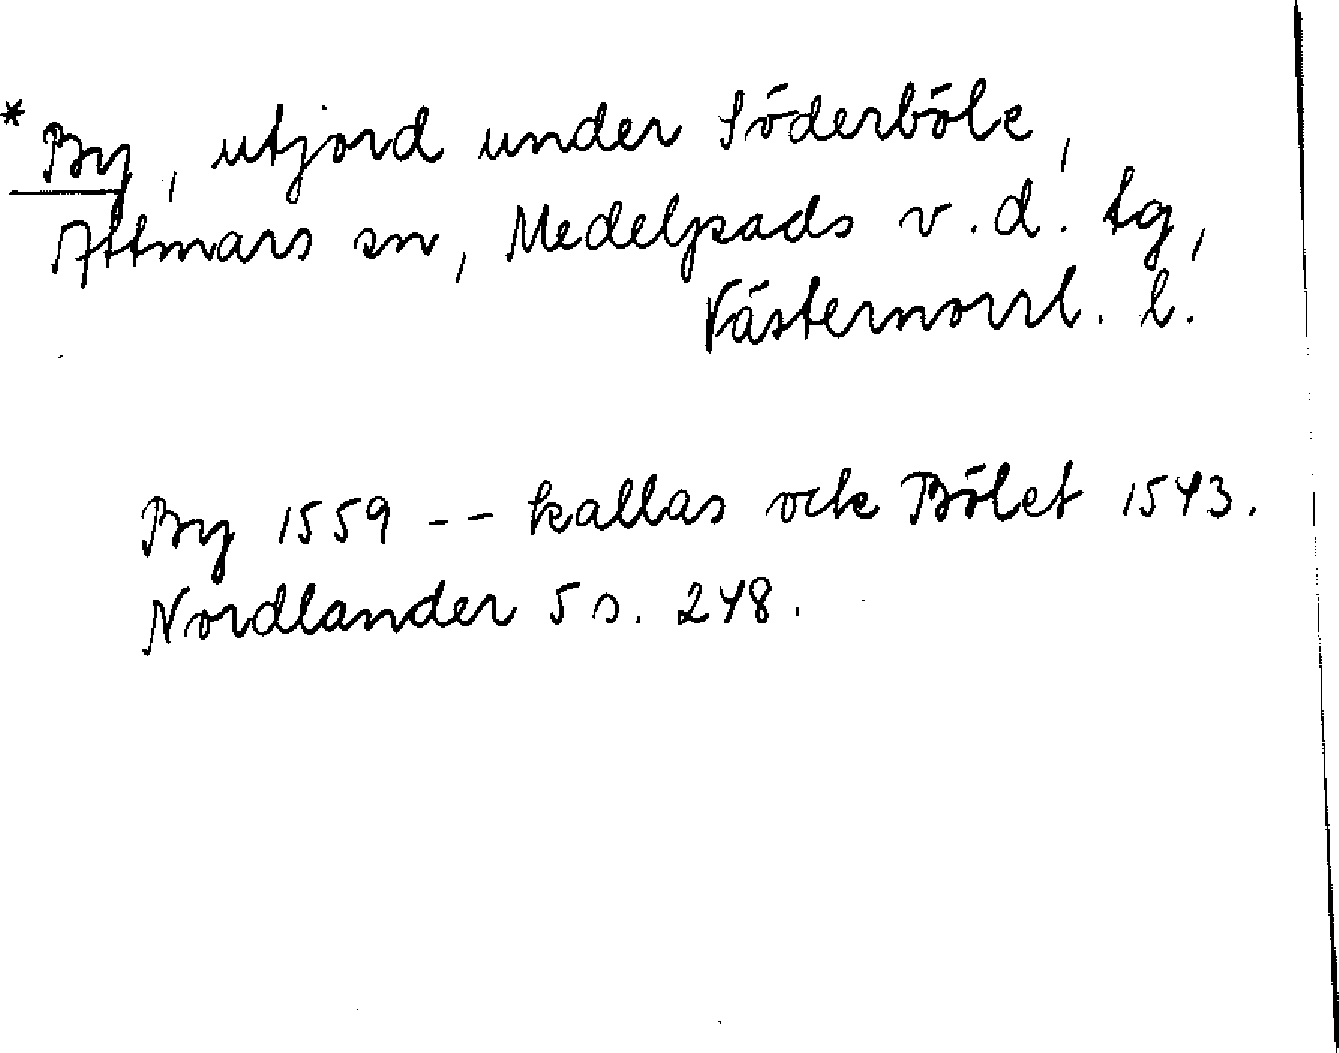 * By, utjord under Söderböle,
Attmars sn, Medelpads v.d. tg,
Västernorrl. l.
By 1559 -- kallas ock Bölet 1543.
Nordlander 5 s. 248.